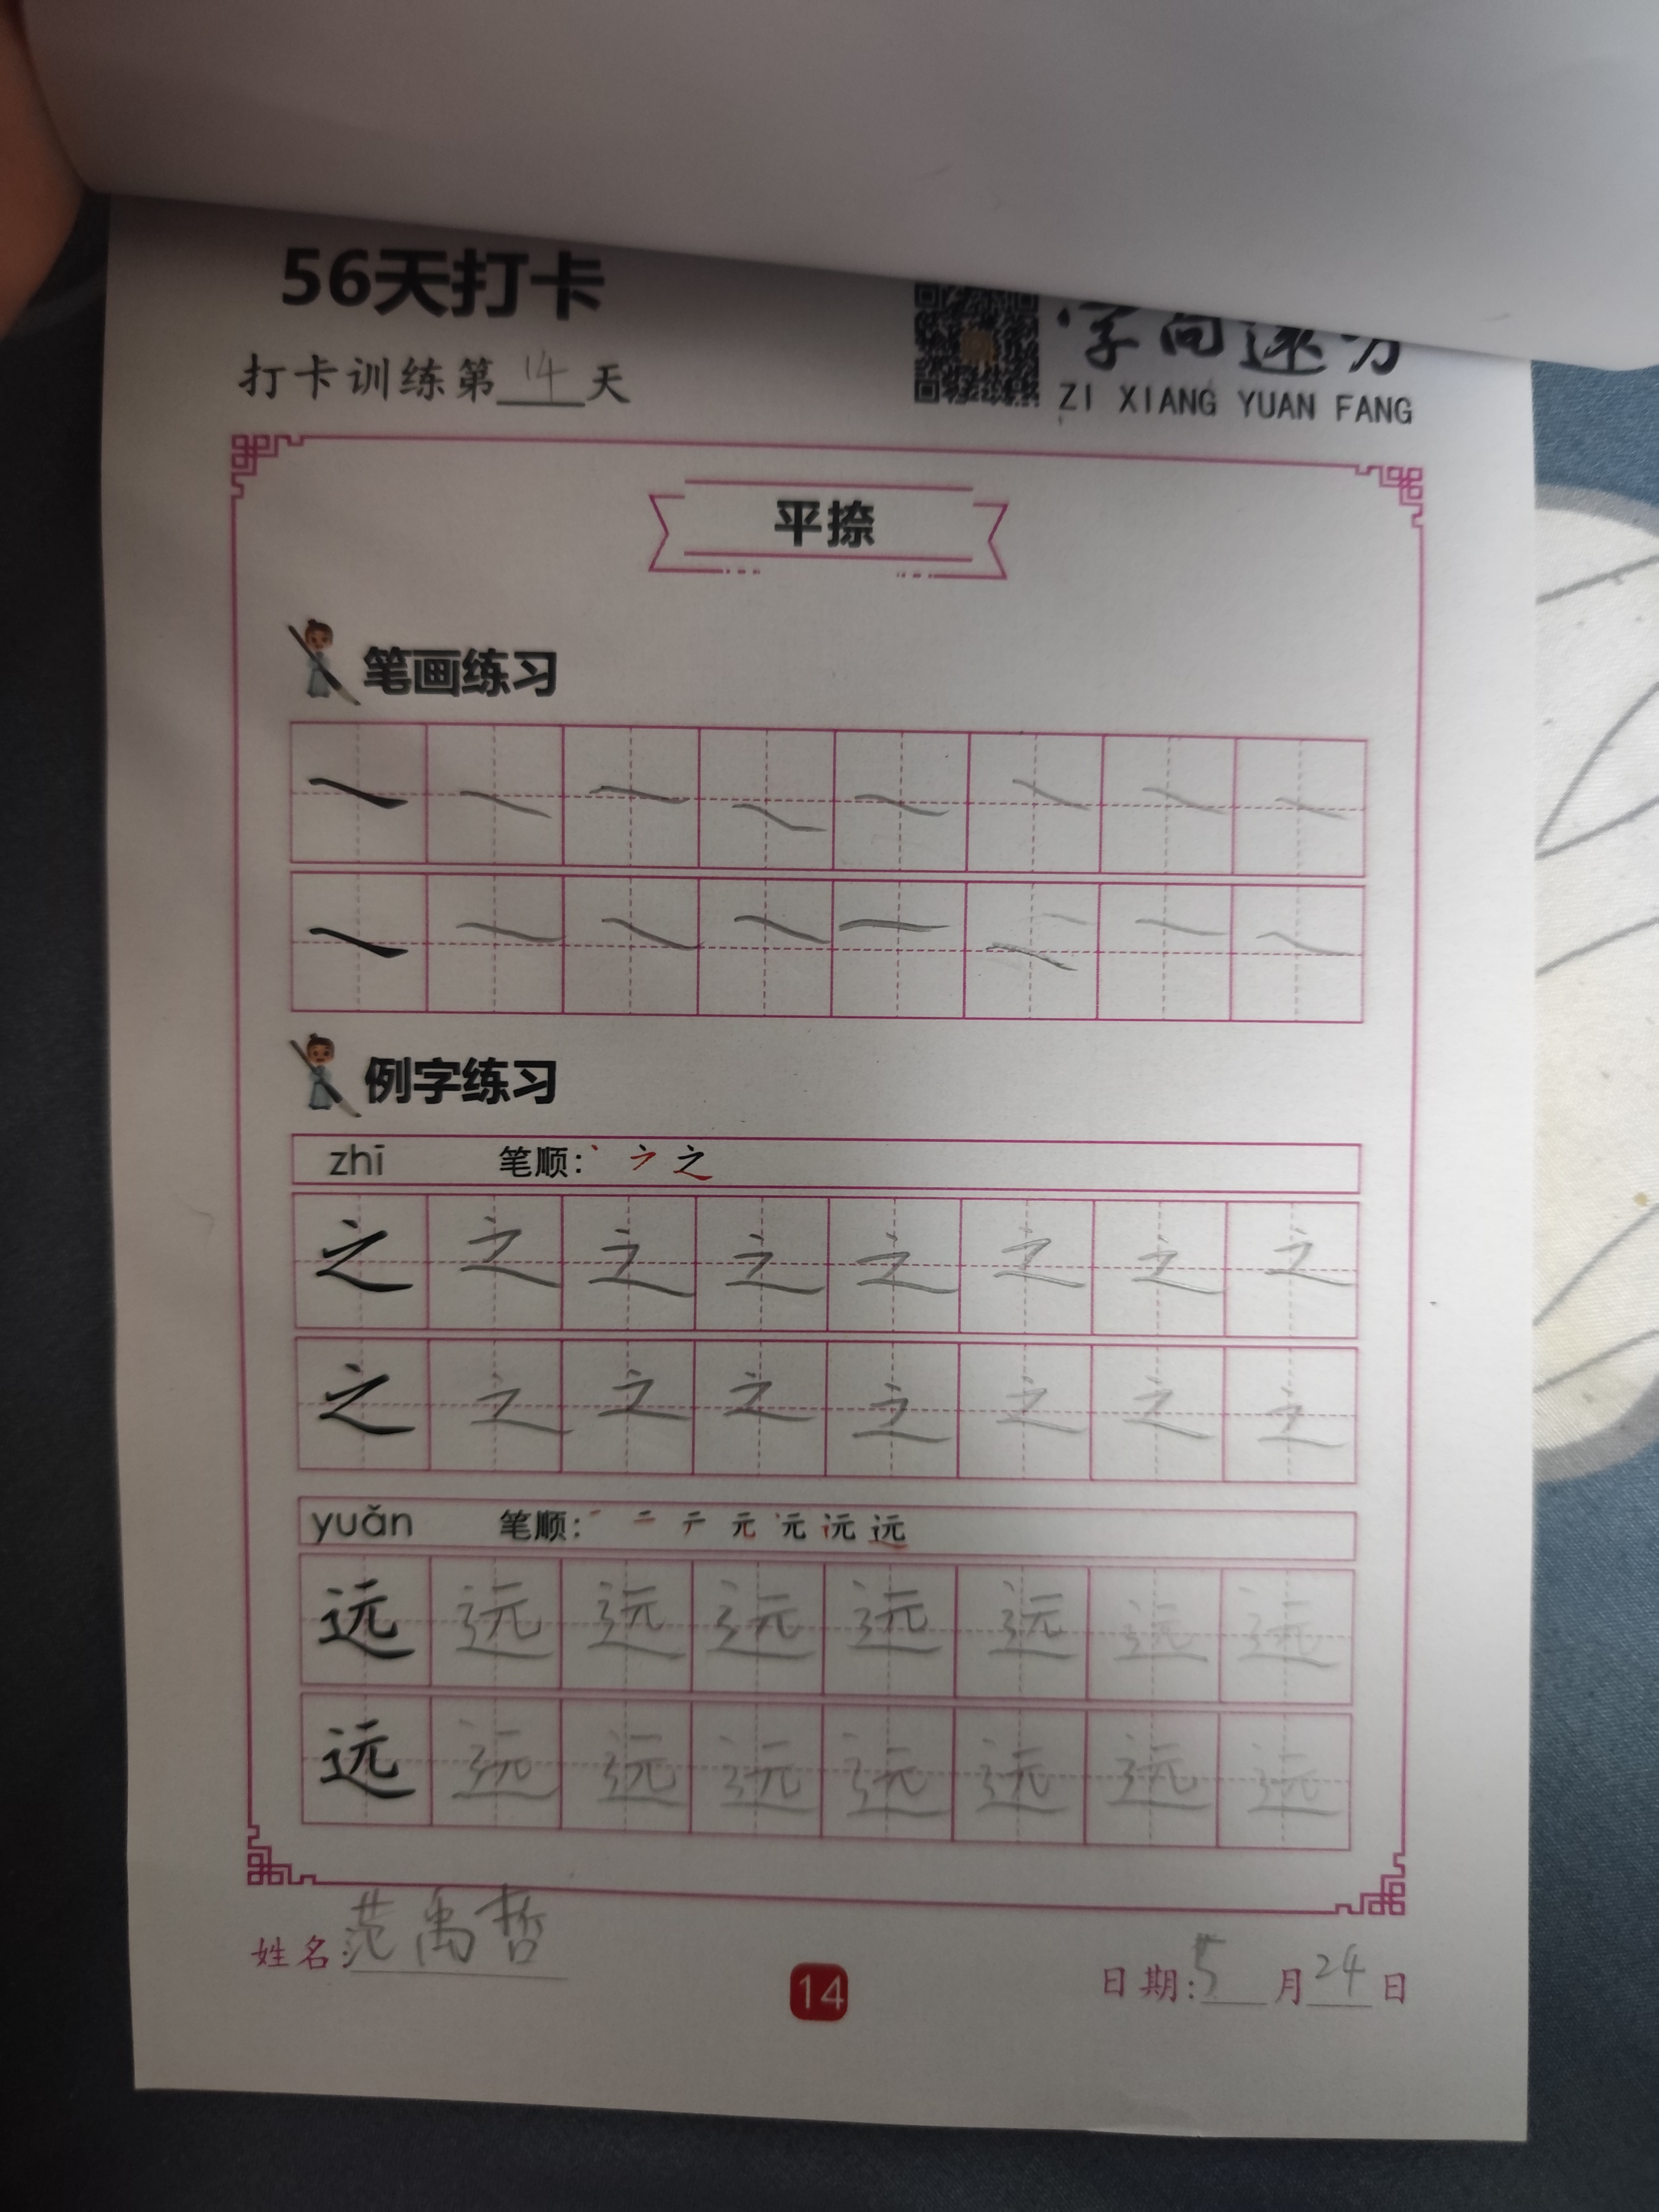 56天打卡
打卡训练第14天
字向远方
ZI XIANG YUAN FANG
平捺
笔画练习
例字练习
zhī 笔顺: 丶 之
之 之 之 之 之 之 之 之
之 之 之 之 之 之 之 之
yuǎn 笔顺: 一 二 テ 元 远
远 远 远 远 远 远 远 远
远 远 远 远 远 远 远 远
姓名:范禹哲
14
日期:5月24日